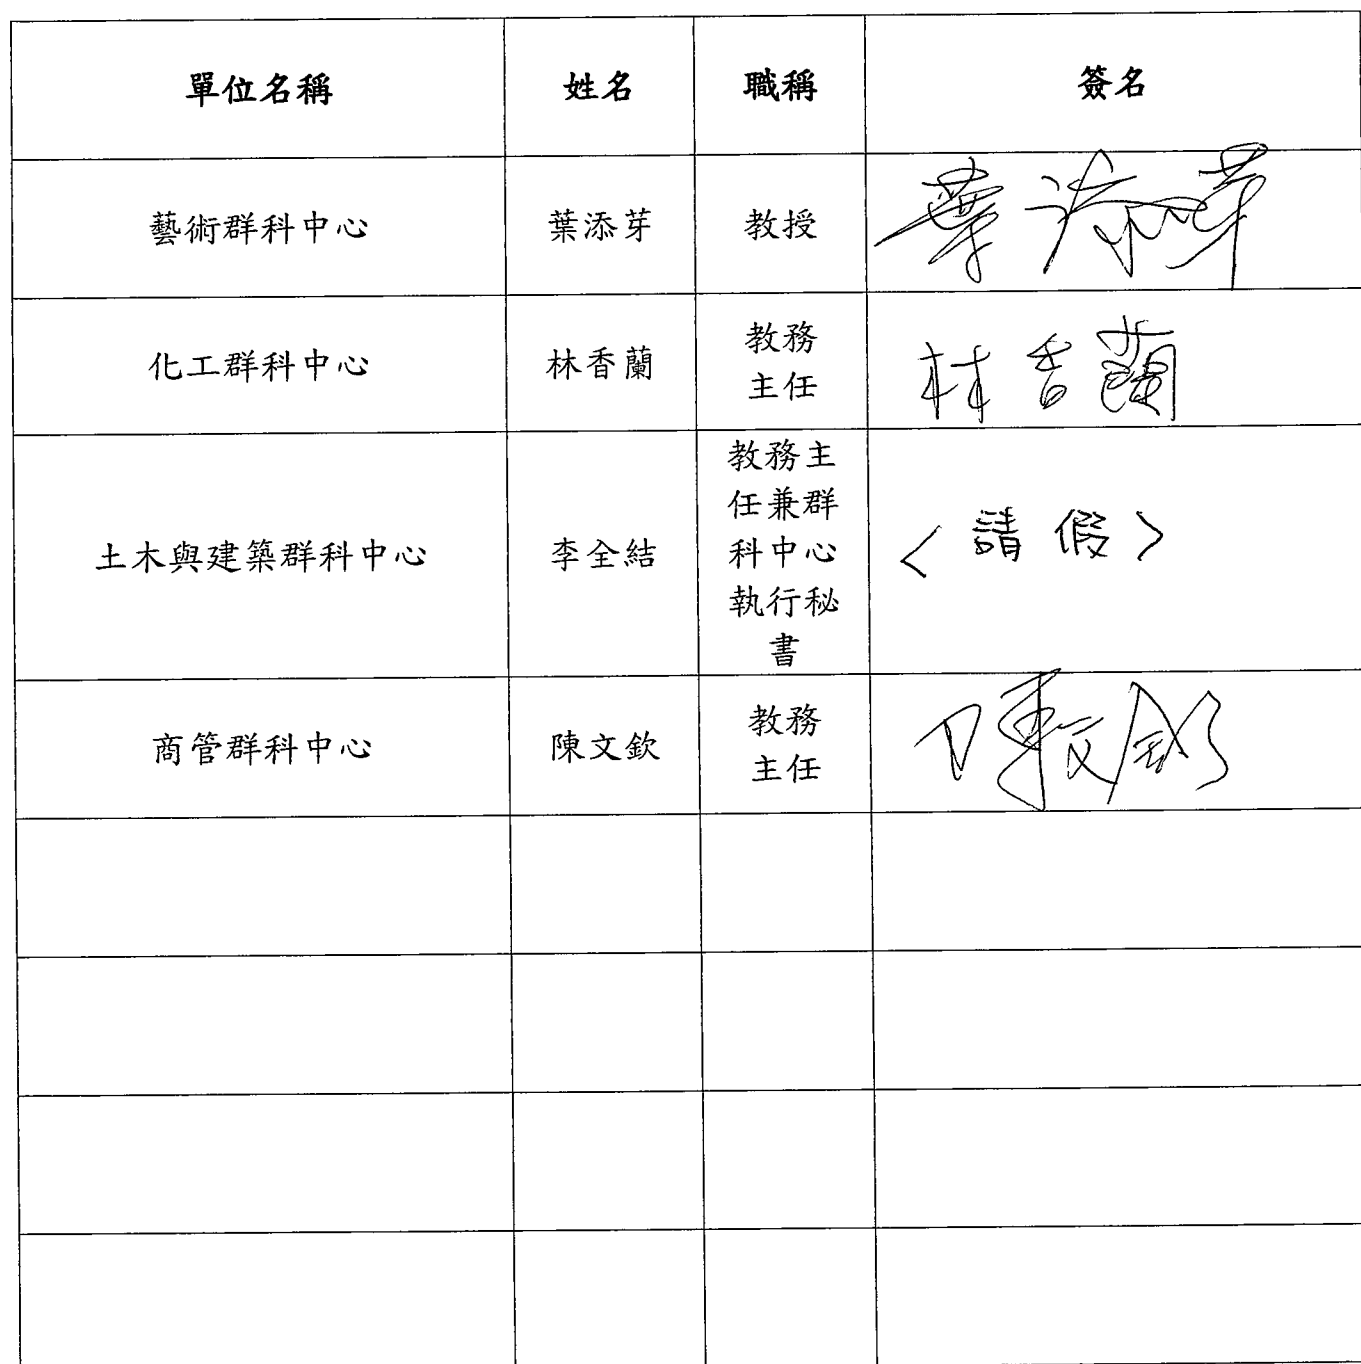 單位名稱 姓名 職稱 簽名
藝術群科中心 葉添芽 教授 葉添芽
化工群科中心 林香蘭 教務
主任 林香蘭
土木與建築群科中心 李全結 教務主
任兼群
科中心
執行秘
書 <請假>
商管群科中心 陳文欽 教務
主任 陳文欽